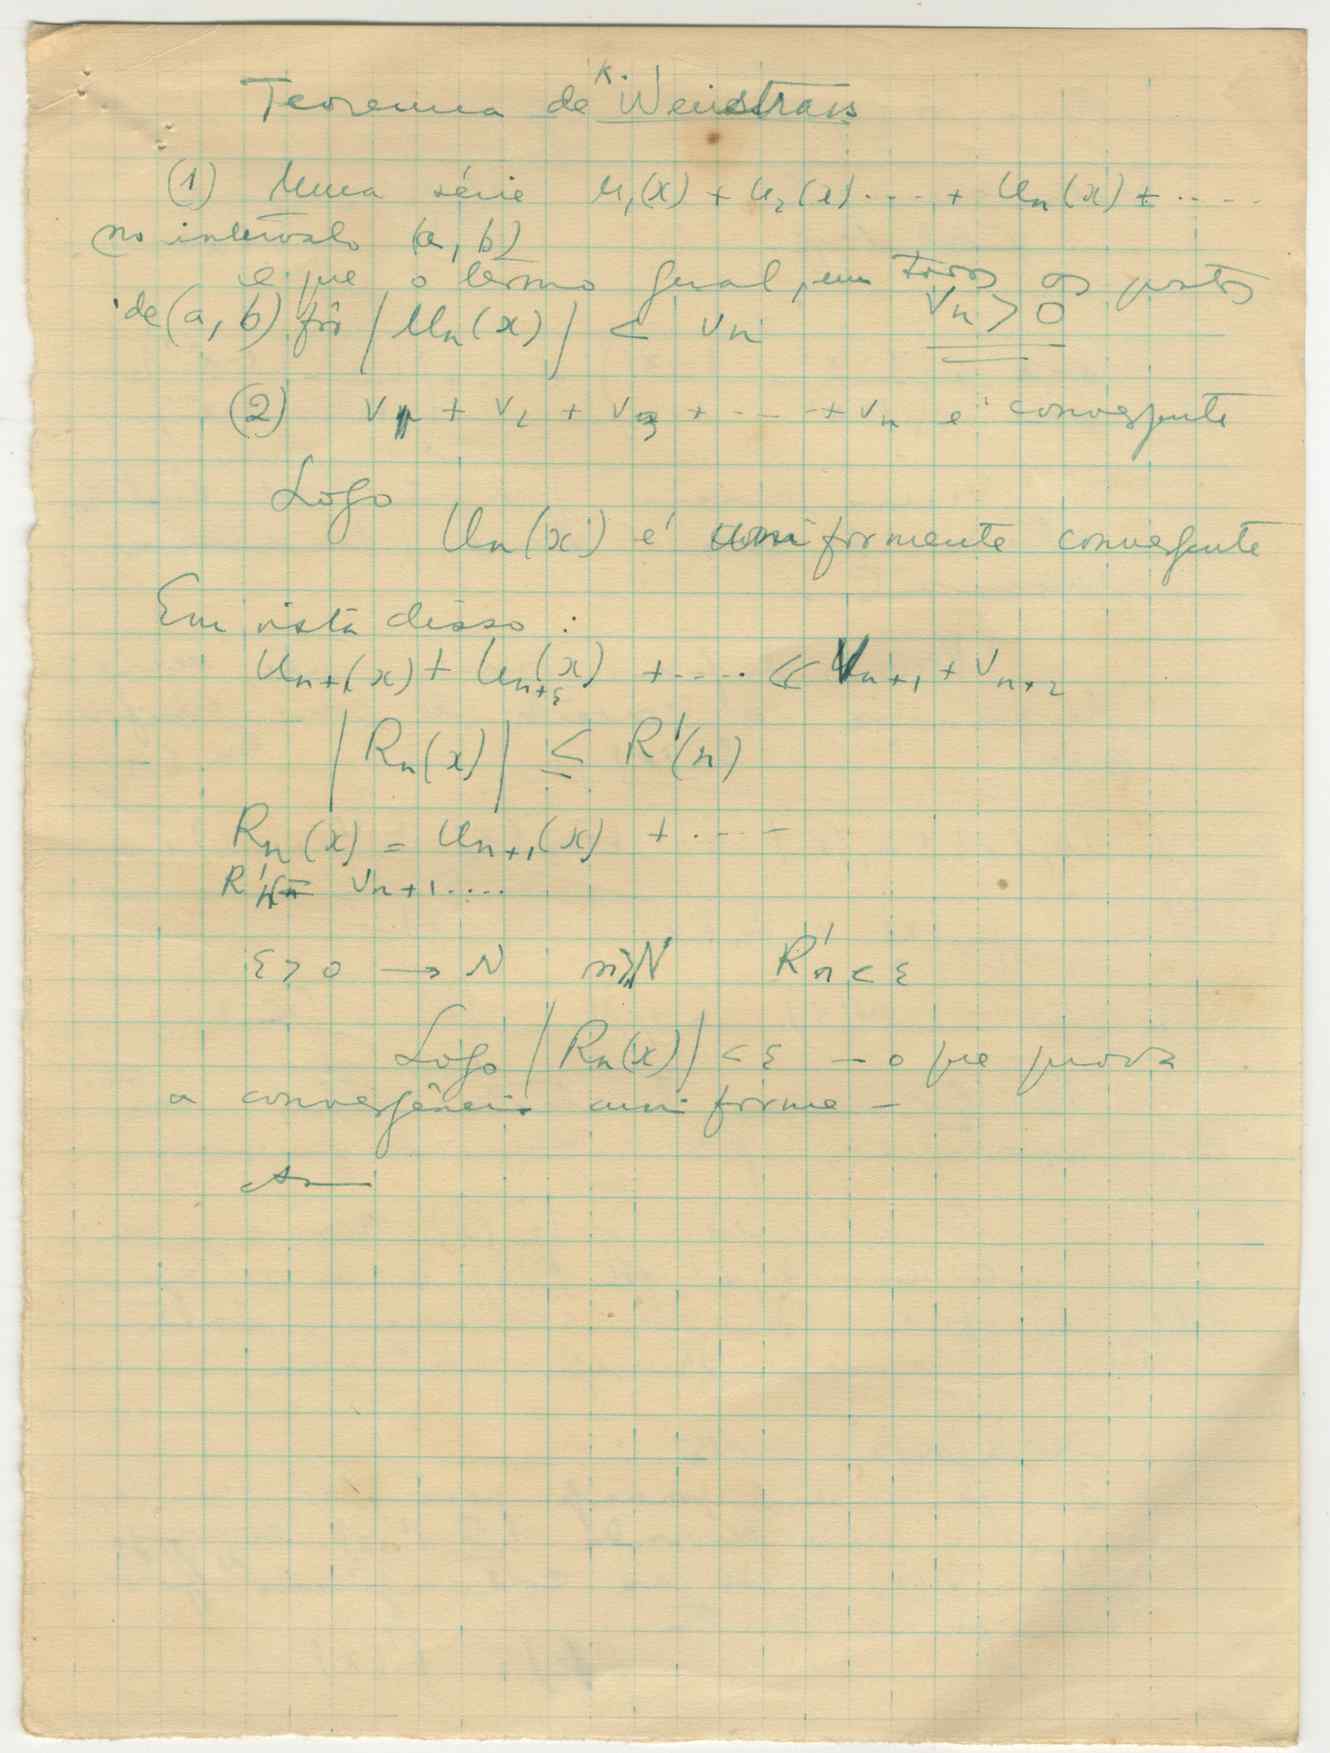 Teorema de K. Weiestrass
(1) Numa série u₁(x) + u₂(x) .... + uₙ(x) + .....
no intervalo (a, b)
e que o termo geral, em todos os pontos
de (a, b) fôr |uₙ(x)| < vₙ vₙ > 0
(2) v₁ + v₂ + v₃ + ---- + vₙ é convergente
Logo
uₙ(x) é uniformemente convergente
Em vista disso :
uₙ₊₁(x) + uₙ₊₂(x) + ..... ≤ vₙ₊₁ + vₙ₊₂
|Rₙ(x)| ≤ R'(n)
Rₙ(x) = uₙ₊₁(x) + .---
R'ₙ = vₙ₊₁ ....
ε > 0 → N n ≥ N R'ₙ < ε
Logo |Rₙ(x)| < ε – o que prova
a convergência uniforme –